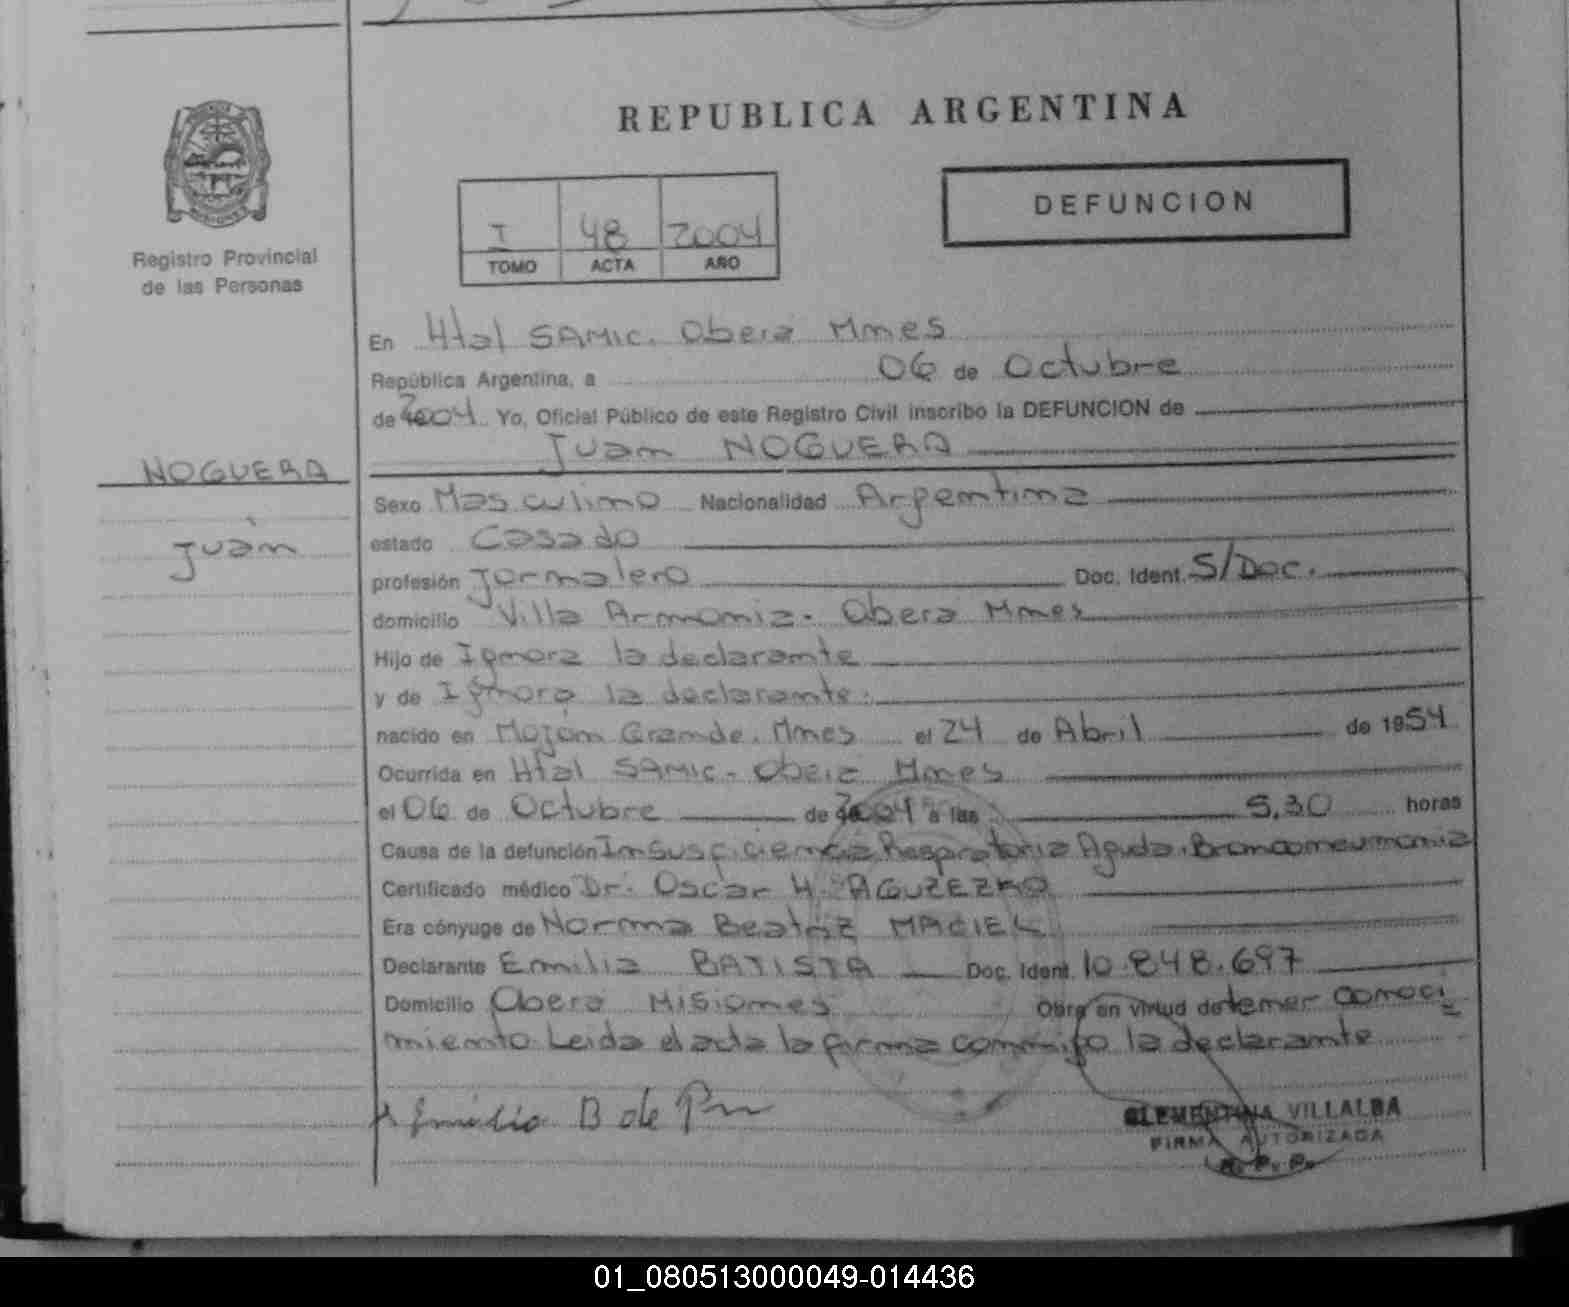 REPUBLICA ARGENTINA
DEFUNCION
I 48 2004
TOMO ACTA AÑO
Registro Provincial
de las Personas
En Htal SAMIC. Oberá Mnes
República Argentina, a 06 de Octubre
de 2004 Yo, Oficial Público de este Registro Civil inscribo la DEFUNCION de
Juan NOGUERA
NOGUERA
Juan
Sexo Masculino Nacionalidad Argentina
estado Casado
profesión Jornalero Doc. Ident. S/Doc.
domicilio Villa Armonia. Oberá Mnes
Hijo de Ignora la declarante
y de Ignora la declarante.
nacido en Mojón Grande. Mnes el 24 de Abril de 1954
Ocurrida en Htal SAMIC. Oberá Mnes
el 06 de Octubre de 2004 a las 5,30 horas
Causa de la defunción Insuficiencia Respiratoria Aguda. Bronconeumonia
Certificado médico Dr. Oscar H.
Era cónyuge de Norma Beatriz MACIEL
Declarante Emilia BATISTA Doc. Ident. 10.848.697
Domicilio Oberá Misiones Obra en virtud de tener conoci
miento. Leida el acta la firma conmigo la declarante
Emilia B de
CLEMENTINA VILLALBA
FIRMA AUTORIZADA
R. P. P.
01_080513000049-014436